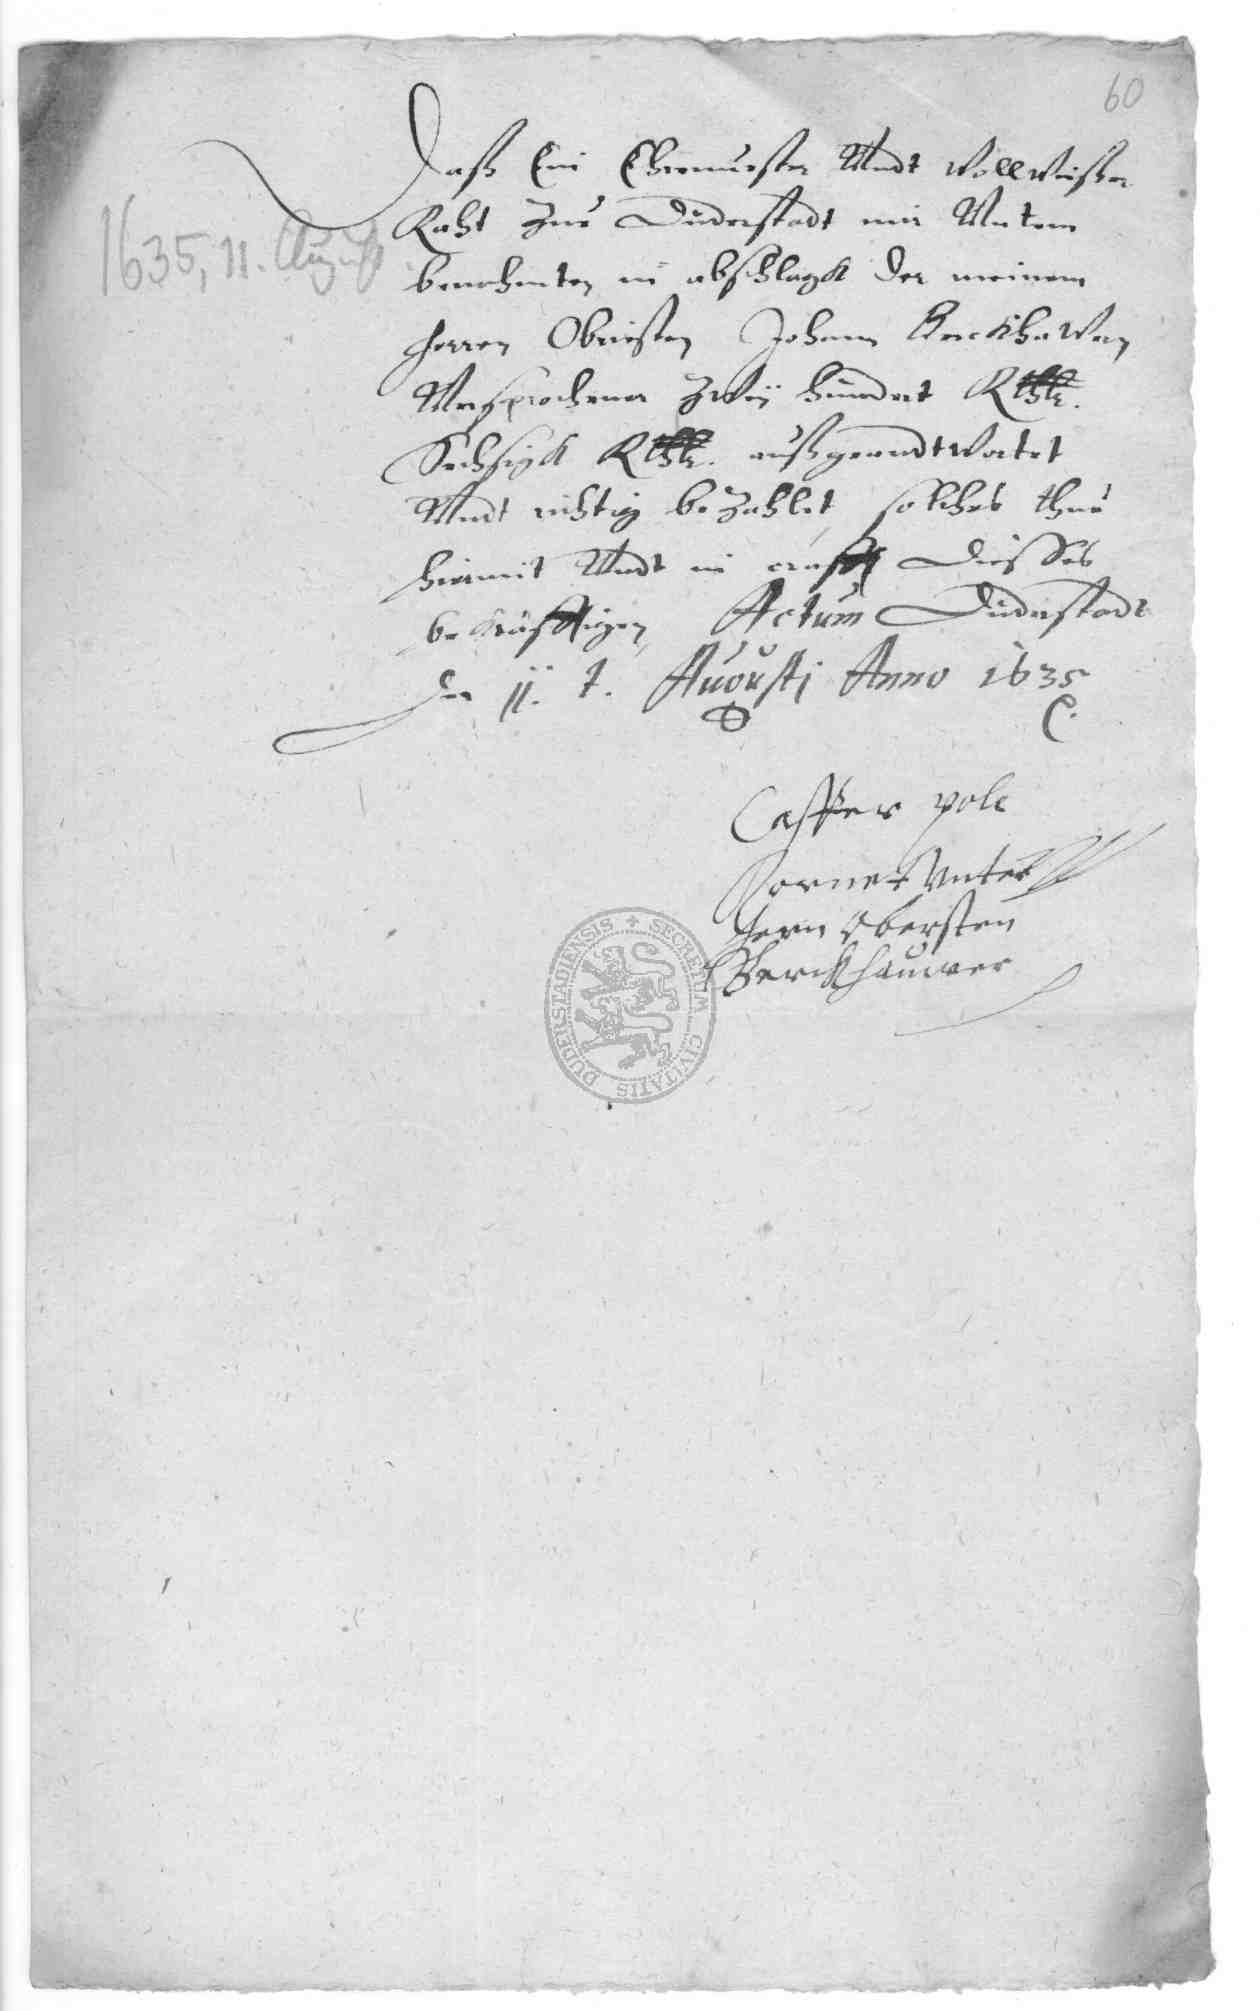 60
1635, 11. August
Daß Ein Ehrnuester Undt Wollweißer
Raht Zue Duderstadt mir Untem
benahmten in abschlagk der meinem
herren Obristen Johann Berckhawern
Versprochener Zweÿ hundert Rthlr.
Sechsigk Rthlr. außgeandtwortet
Undt richtig beZahlet, solches thue
hiermit Undt in crafft diesses
bekräfftigen, Actum Duderstadt
den 11. t. Augusti Anno 1635
Casper pole
Cornet Unter
hern Obersten
Berckhauwer
SECRETUM CIVITATIS DUDERSTADIENSIS